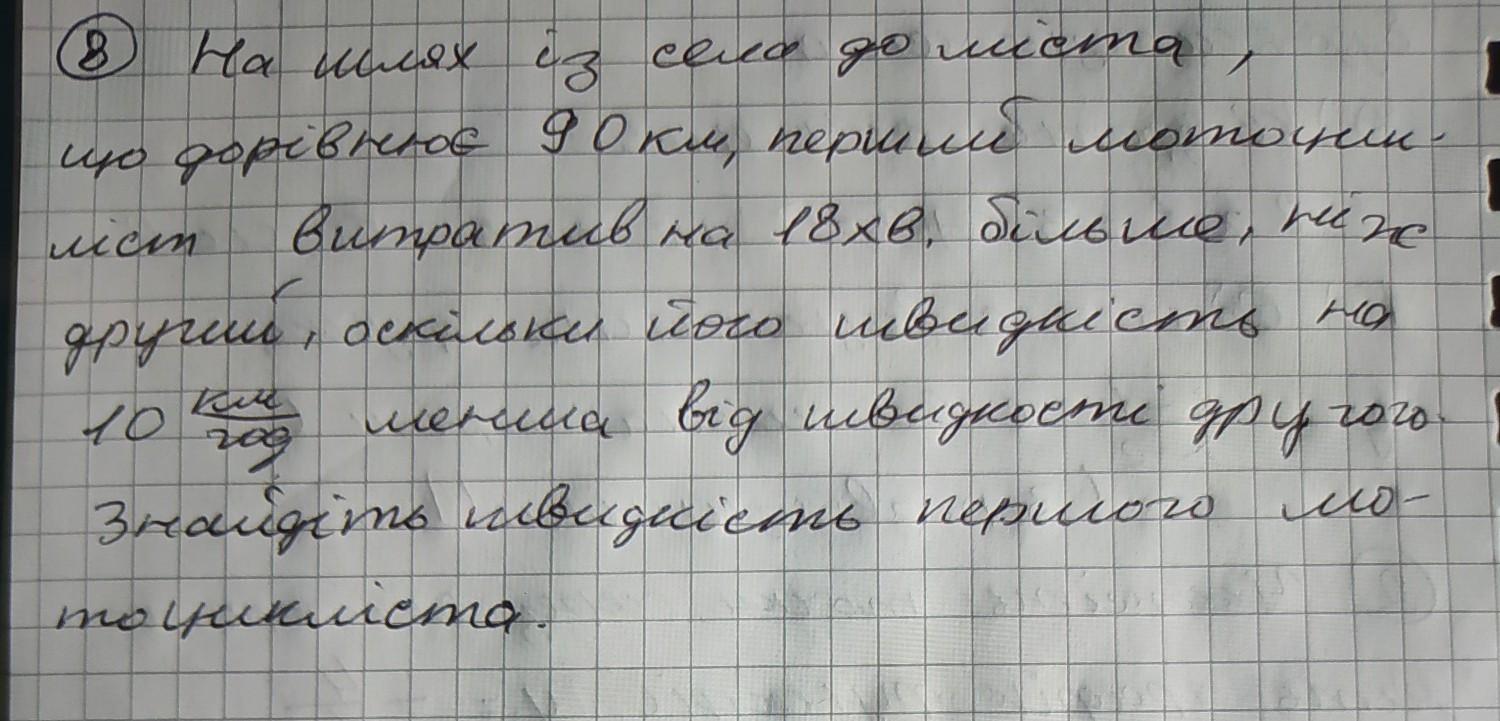 8 На шлях із села до міста,
що дорівнює 90 км, перший мотоцик-
ліст витратив на 18 хв. більше, ніж
другий, оскільки його швидкість на
10 км/год менша від швидкості другого.
Знайдіть швидкість першого мо-
тоцикліста.